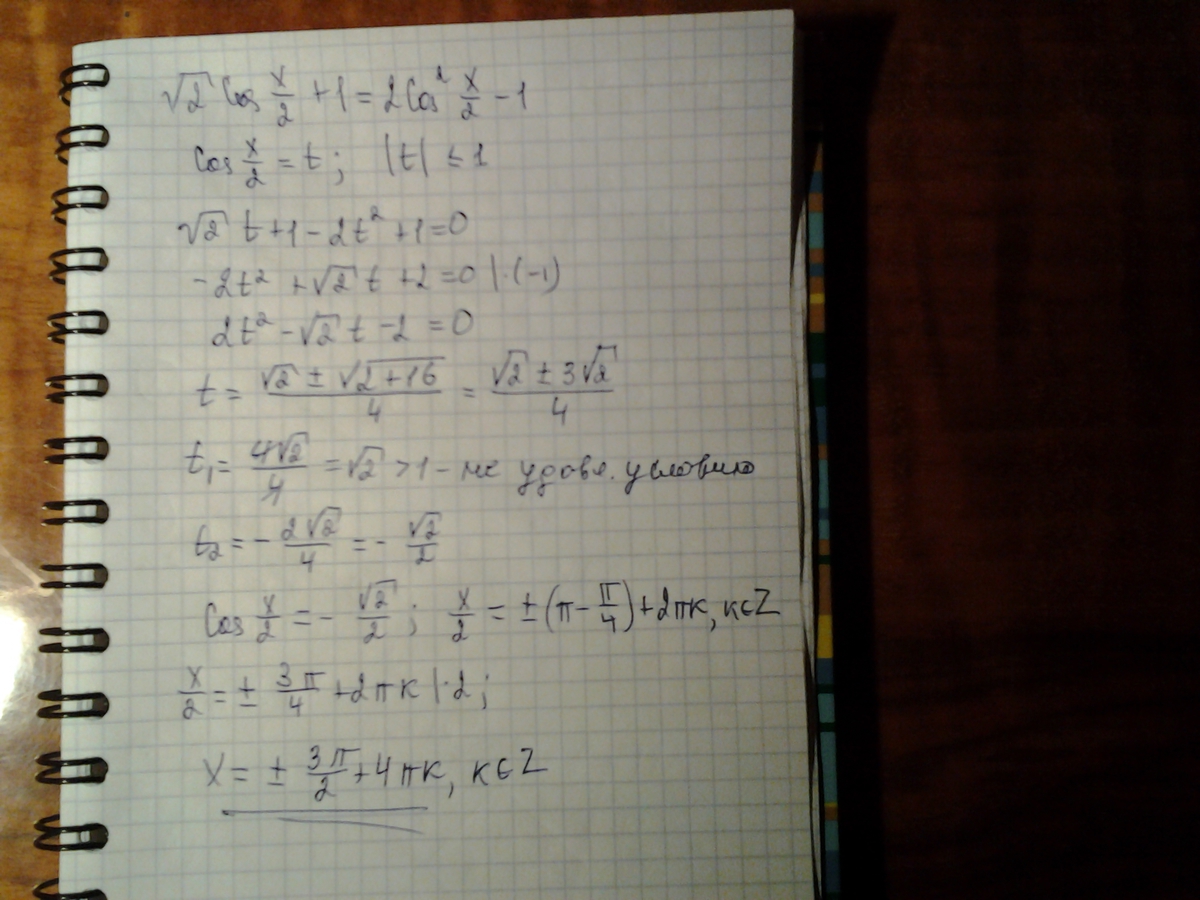 √2 cos x/2 + 1 = 2cos² x/2 - 1
cos x/2 = t; |t| ≤ 1
√2 t + 1 - 2t² + 1 = 0
-2t² + √2 t + 2 = 0 |·(-1)
2t² - √2 t - 2 = 0
t = (√2 ± √(2+16))/4 = (√2 ± 3√2)/4
t₁ = 4√2/4 = √2 > 1 - не удовл. условию
t₂ = - 2√2/4 = - √2/2
cos x/2 = - √2/2; x/2 = ±(π - π/4) + 2πк, к∈Z
x/2 = ± 3π/4 + 2πк |·2;
x = ± 3π/2 + 4πк, к∈Z